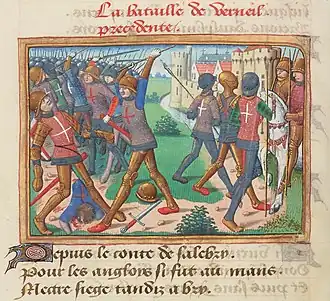 La bataille de Verneil
precedente
Depuis le conte de salebry
Pour les anglois si fut au mans
Mectre siege tandiz a bry